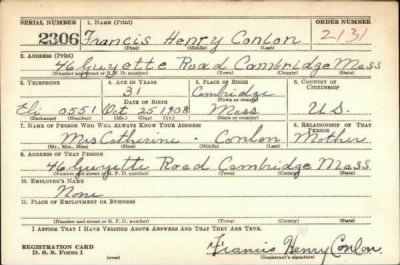 SERIAL NUMBER 1. NAME (Print) ORDER NUMBER
2306 Francis Henry Conlon 2131
(First) (Middle) (Last)
2. ADDRESS (Print)
46 Guyette Road Cambridge Mass
(Number and street or R. F. D. number) (Town) (County) (State)
3. TELEPHONE 4. AGE IN YEARS 5. PLACE OF BIRTH 6. COUNTRY OF CITIZENSHIP
31 Cambridge
DATE OF BIRTH (Town or county)
Eli 0551 Oct 25 1908 Mass U.S.
(Exchange) (Number) (Mo.) (Day) (Yr.) (State or country)
7. NAME OF PERSON WHO WILL ALWAYS KNOW YOUR ADDRESS 8. RELATIONSHIP OF THAT PERSON
Mrs Catherine - Conlon Mother
(Mr., Mrs., Miss) (First) (Middle) (Last)
9. ADDRESS OF THAT PERSON
46 Guyette Road Cambridge Mass
(Number and street or R. F. D. number) (Town) (County) (State)
10. EMPLOYER'S NAME
None
11. PLACE OF EMPLOYMENT OR BUSINESS
(Number and street or R. F. D. number) (Town) (County) (State)
I AFFIRM THAT I HAVE VERIFIED ABOVE ANSWERS AND THAT THEY ARE TRUE.
REGISTRATION CARD
D. S. S. Form 1 Francis Henry Conlon.
(Registrant's signature)